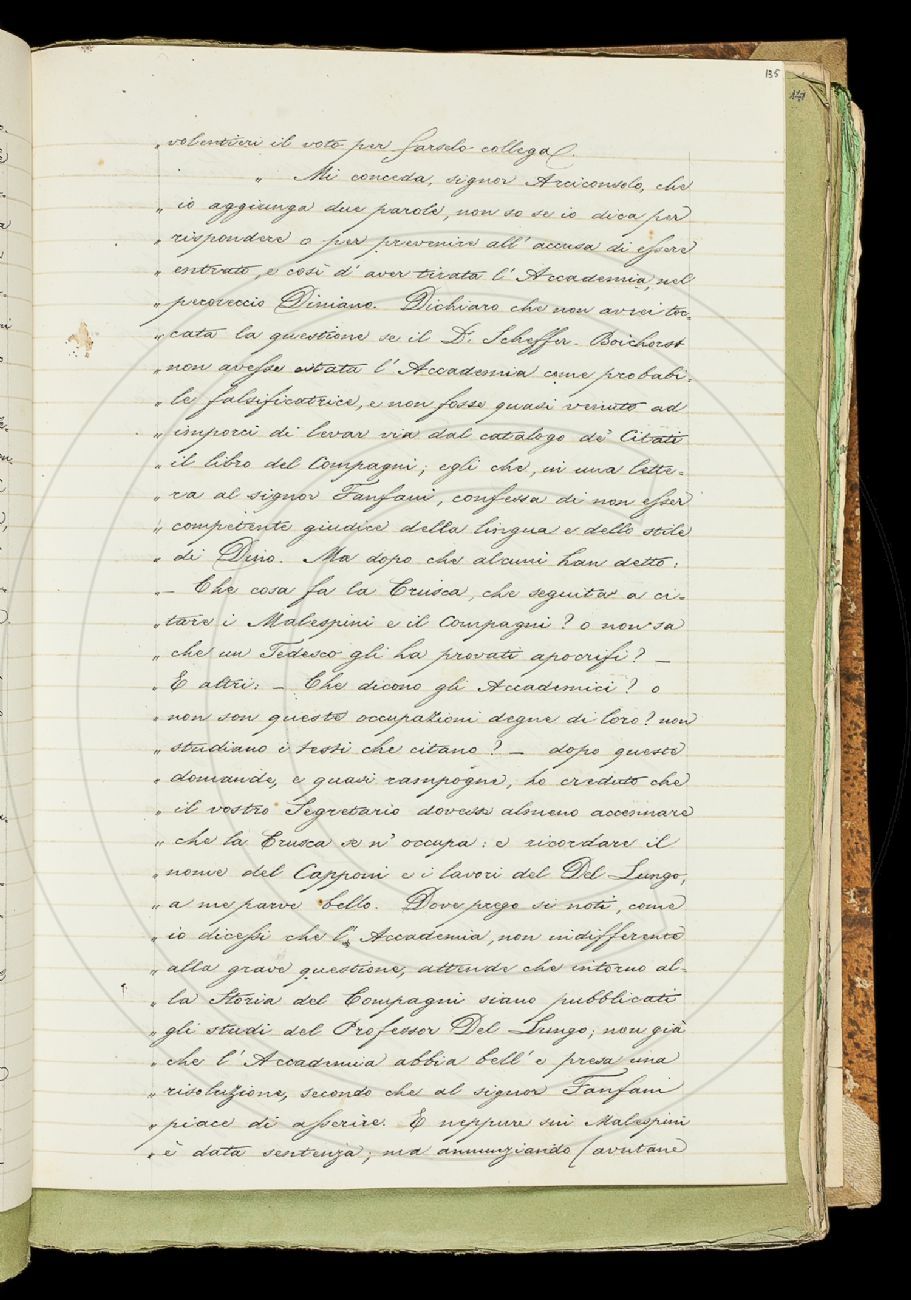 135
„ volentieri il voto per farselo collega.
„ Mi conceda, signor Arciconsolo, che
„ io aggiunga due parole, non so se io dica per
„ rispondere o per prevenire all'accusa di essere
„ entrato, e così d'aver tirata l'Accademia, nel
„ pecoreccio Diniano. Dichiaro che non avrei toc=
„ cata la questione se il Dr. Scheffer-Boichorst
„ non avesse citata l'Accademia come probabi=
„ le falsificatrice, e non fosse quasi venuto ad
„ imporci di levar via dal catalogo de' Citati
„ il libro del Compagni; egli che, in una lette=
„ ra al signor Fanfani, confessa di non esser
„ competente giudice della lingua e dello stile
„ di Dino. Ma dopo che alcuni han detto:
„ — Che cosa fa la Crusca, che seguita a ci=
„ tare i Malespini e il Compagni? o non sa
„ che un Tedesco gli ha provati apocrifi? —
„ E altri: — Che dicono gli Accademici? o
„ non son queste occupazioni degne di loro? non
„ studiano i testi che citano? — dopo queste
„ domande, e quasi rampogne, ho creduto che
„ il vostro Segretario dovesse almeno accennare
„ che la Crusca se n'occupa: e ricordare il
„ nome del Capponi e i lavori del Del Lungo,
„ a me parve bello. Dove prego si noti, come
„ io dicessi che l'Accademia, non indifferente
„ alla grave questione, attende che intorno al=
„ la Storia del Compagni siano pubblicati
„ gli studi del Professor Del Lungo; non già
„ che l'Accademia abbia bell'e presa una
„ risoluzione, secondo che al signor Fanfani
„ piace di asserire. E neppure sui Malespini
„ è data sentenza; ma annunziando (avutane